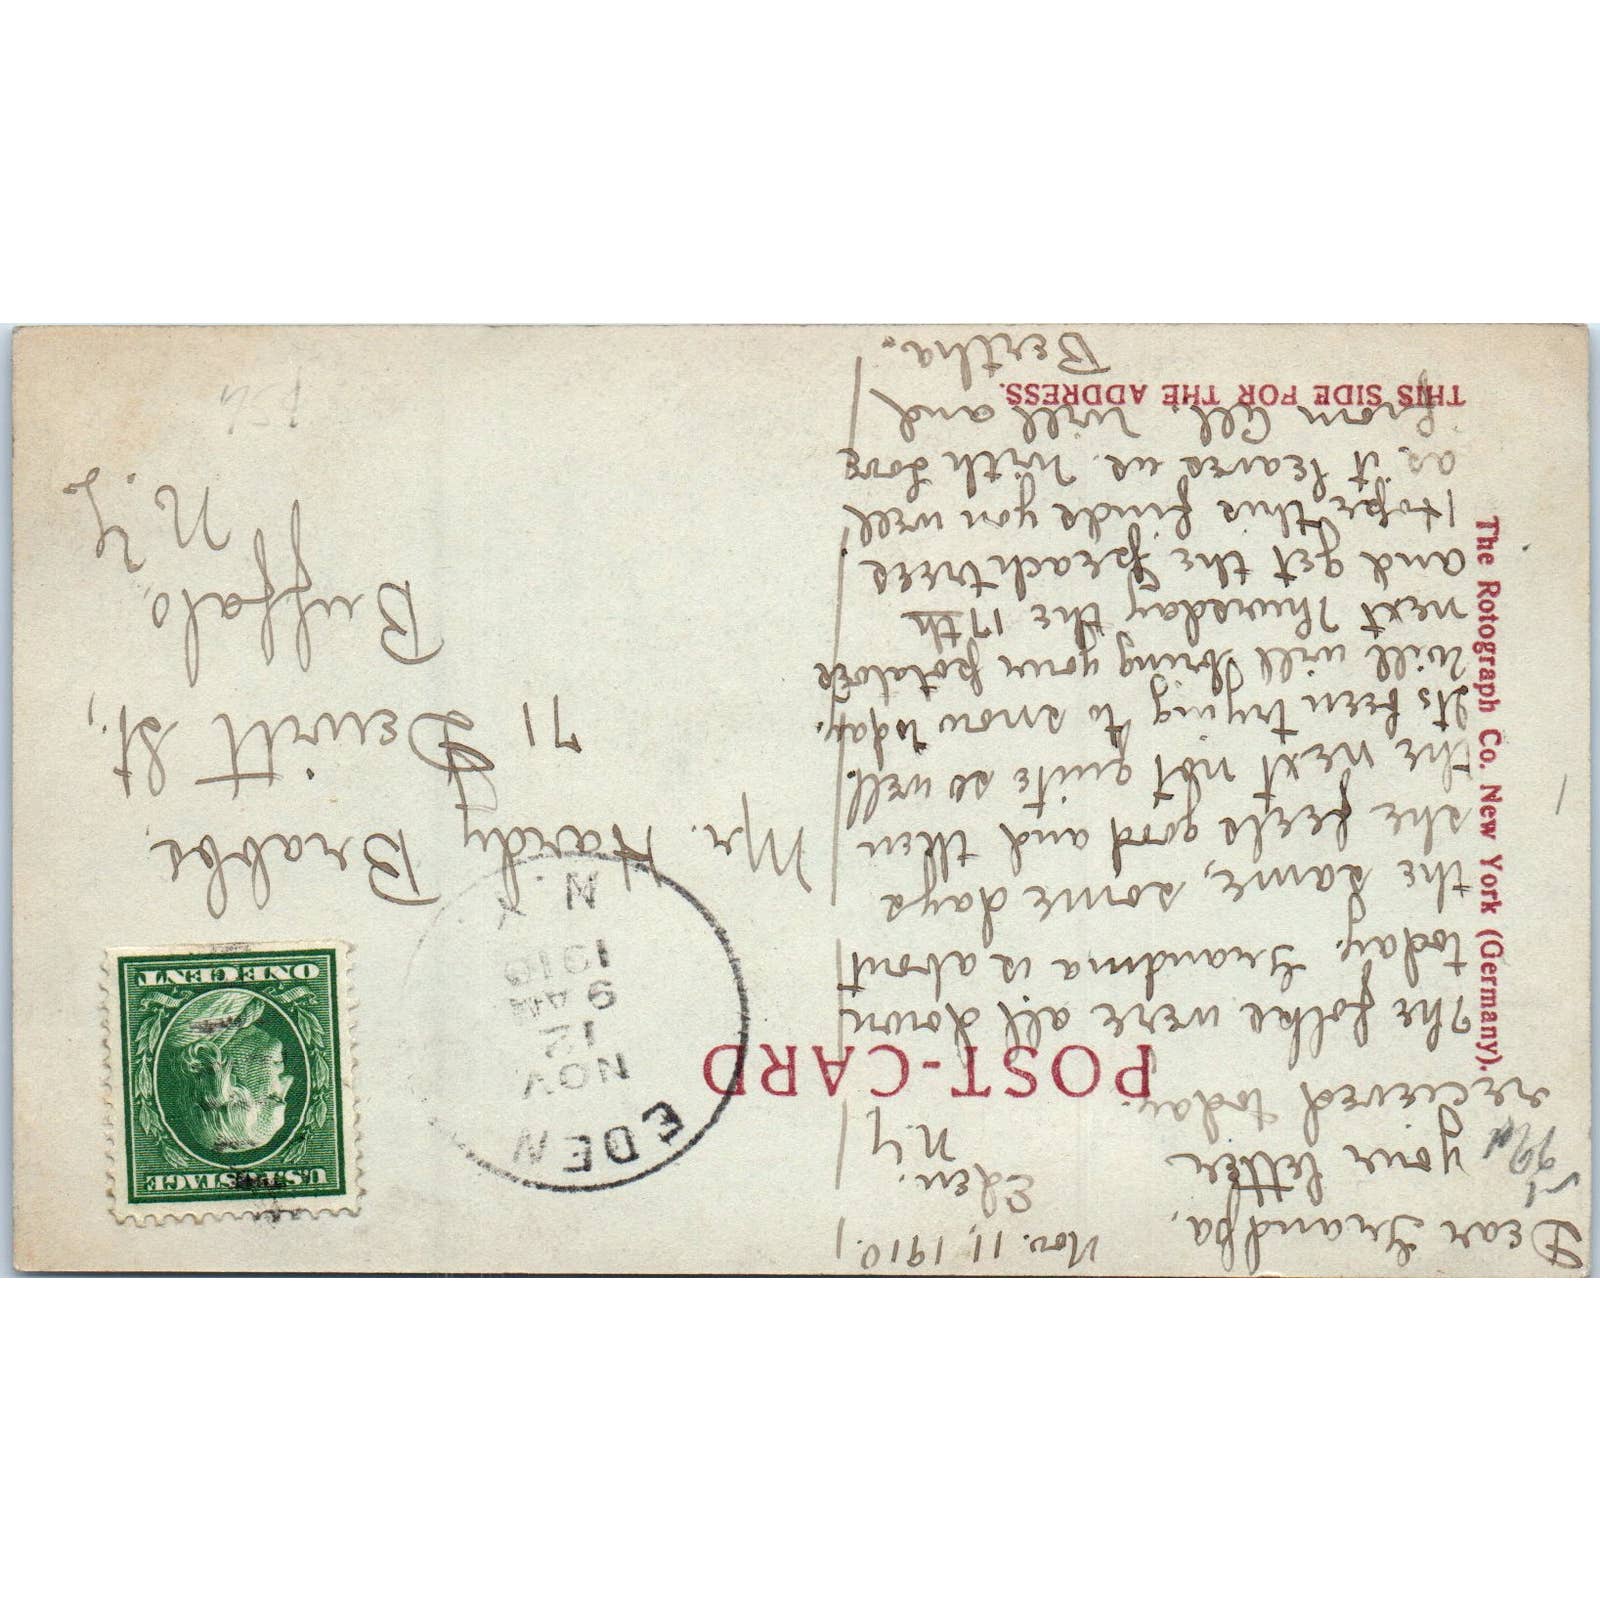 Nov. 11, 1910.
Eden.
N.Y.
Dear Grandpa,
your letter
recieved today.
The folks were all down
today. Grandma is about
the same, some days
she feels good and then
the next not quite so well.
Its been trying to snow today.
Will will bring your potatoes
next Thursday the 17th
and get the peach trees
Hope this finds you well
as it leaves us. With love
from all. Will and
Bertha.
POST-CARD
THIS SIDE FOR THE ADDRESS.
The Rotograph Co. New York (Germany).
EDEN
NOV
12
9 AM
1910
N.Y.
U.S. POSTAGE
ONE CENT
Mr. Hardy Brabbs,
71 Dewitt St.,
Buffalo,
N.Y.